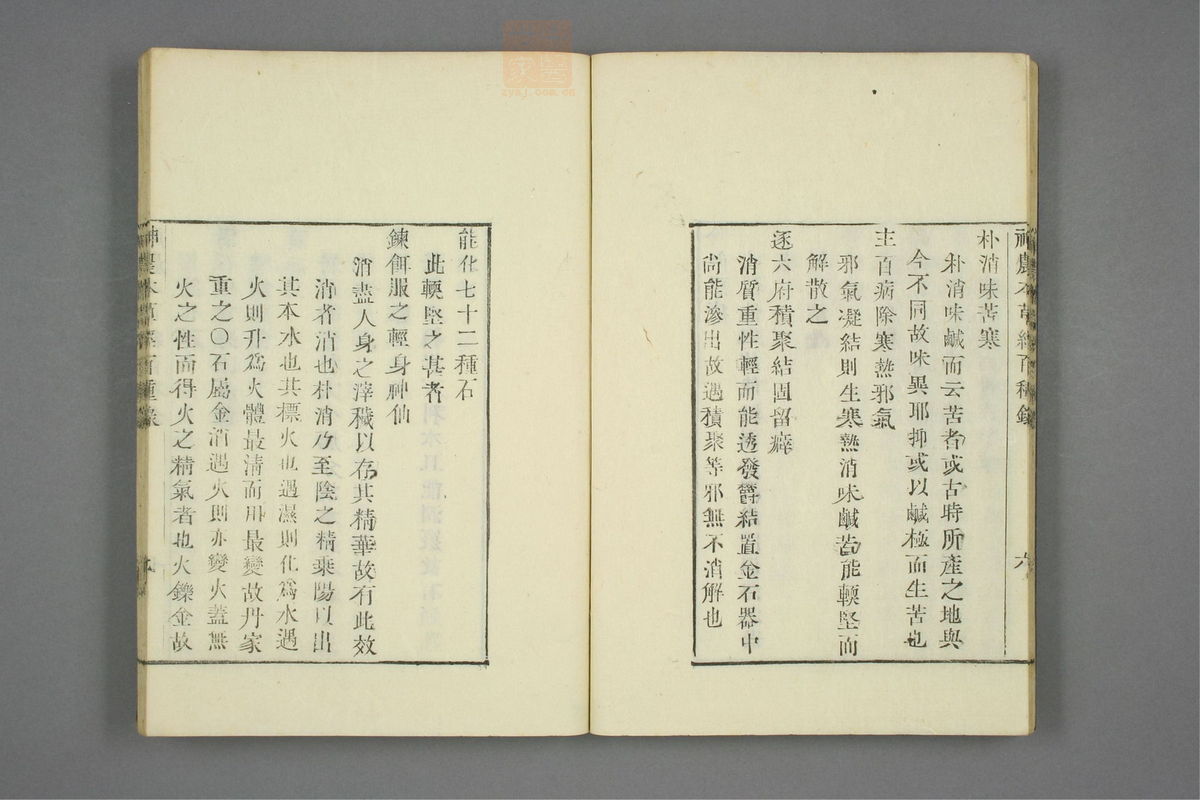 神農本草經百種錄
六
朴消味苦寒
朴消味鹹而云苦者或古時所產之地與
今不同故味異耶抑或以鹹極而生苦也
主百病除寒熱邪氣
邪氣凝結則生寒熱消味鹹苦能輭堅而
解散之
逐六府積聚結固留癖
消質重性輕而能透發鬱結置金石器中
尚能滲出故遇積聚等邪無不消解也
能化七十二種石
此輭堅之甚者
鍊餌服之輕身神仙
消盡人身之滓穢以存其精華故有此效
消者消也朴消乃至陰之精乘陽以出
其本水也其標火也遇濕則化為水遇
火則升為火體最清而用最變故丹家
重之〇石屬金消遇火則亦變火蓋無
火之性而得火之精氣者也火鑠金故
神農本草經百種錄
zysj.com.cn